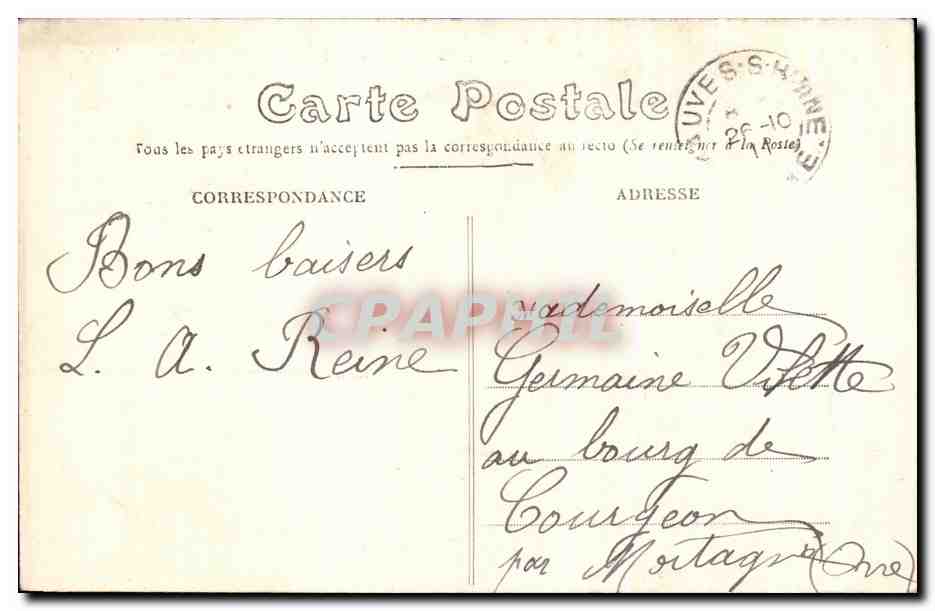 Carte Postale
Tous les pays étrangers n'acceptent pas la correspondance au recto (Se renseigner à la Poste)
CORRESPONDANCE
ADRESSE
Bons baisers
L. A. Reine
Mademoiselle
Germaine
au bourg de
Courgeon
par Mortagne (Orne)
AUVES-S-HUINE
26-10
CPAPHIL